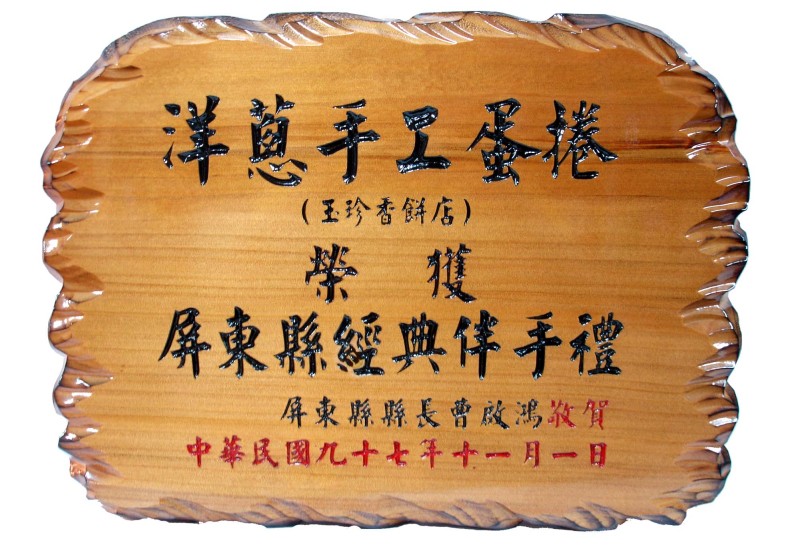 洋蔥手工蛋捲
(玉珍香餅店)
榮獲
屏東縣經典伴手禮
屏東縣縣長曹啟鴻敬賀
中華民國九十七年十一月一日